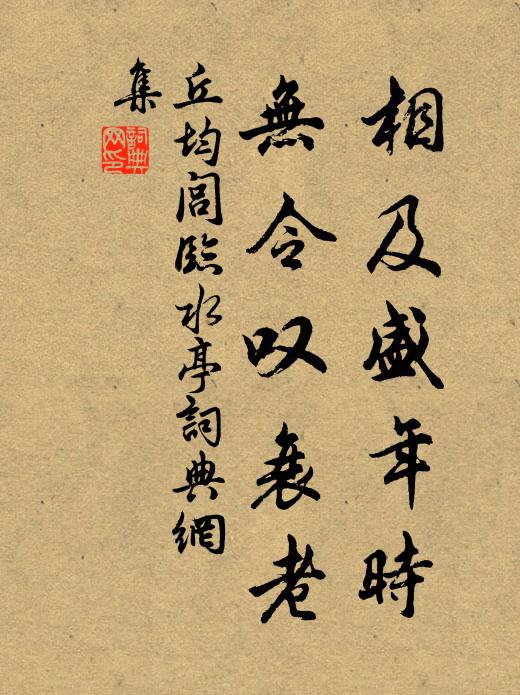 相及盛年時
無令叹衰老
丘均閻臨水亭詞典網
集
詞典
网印